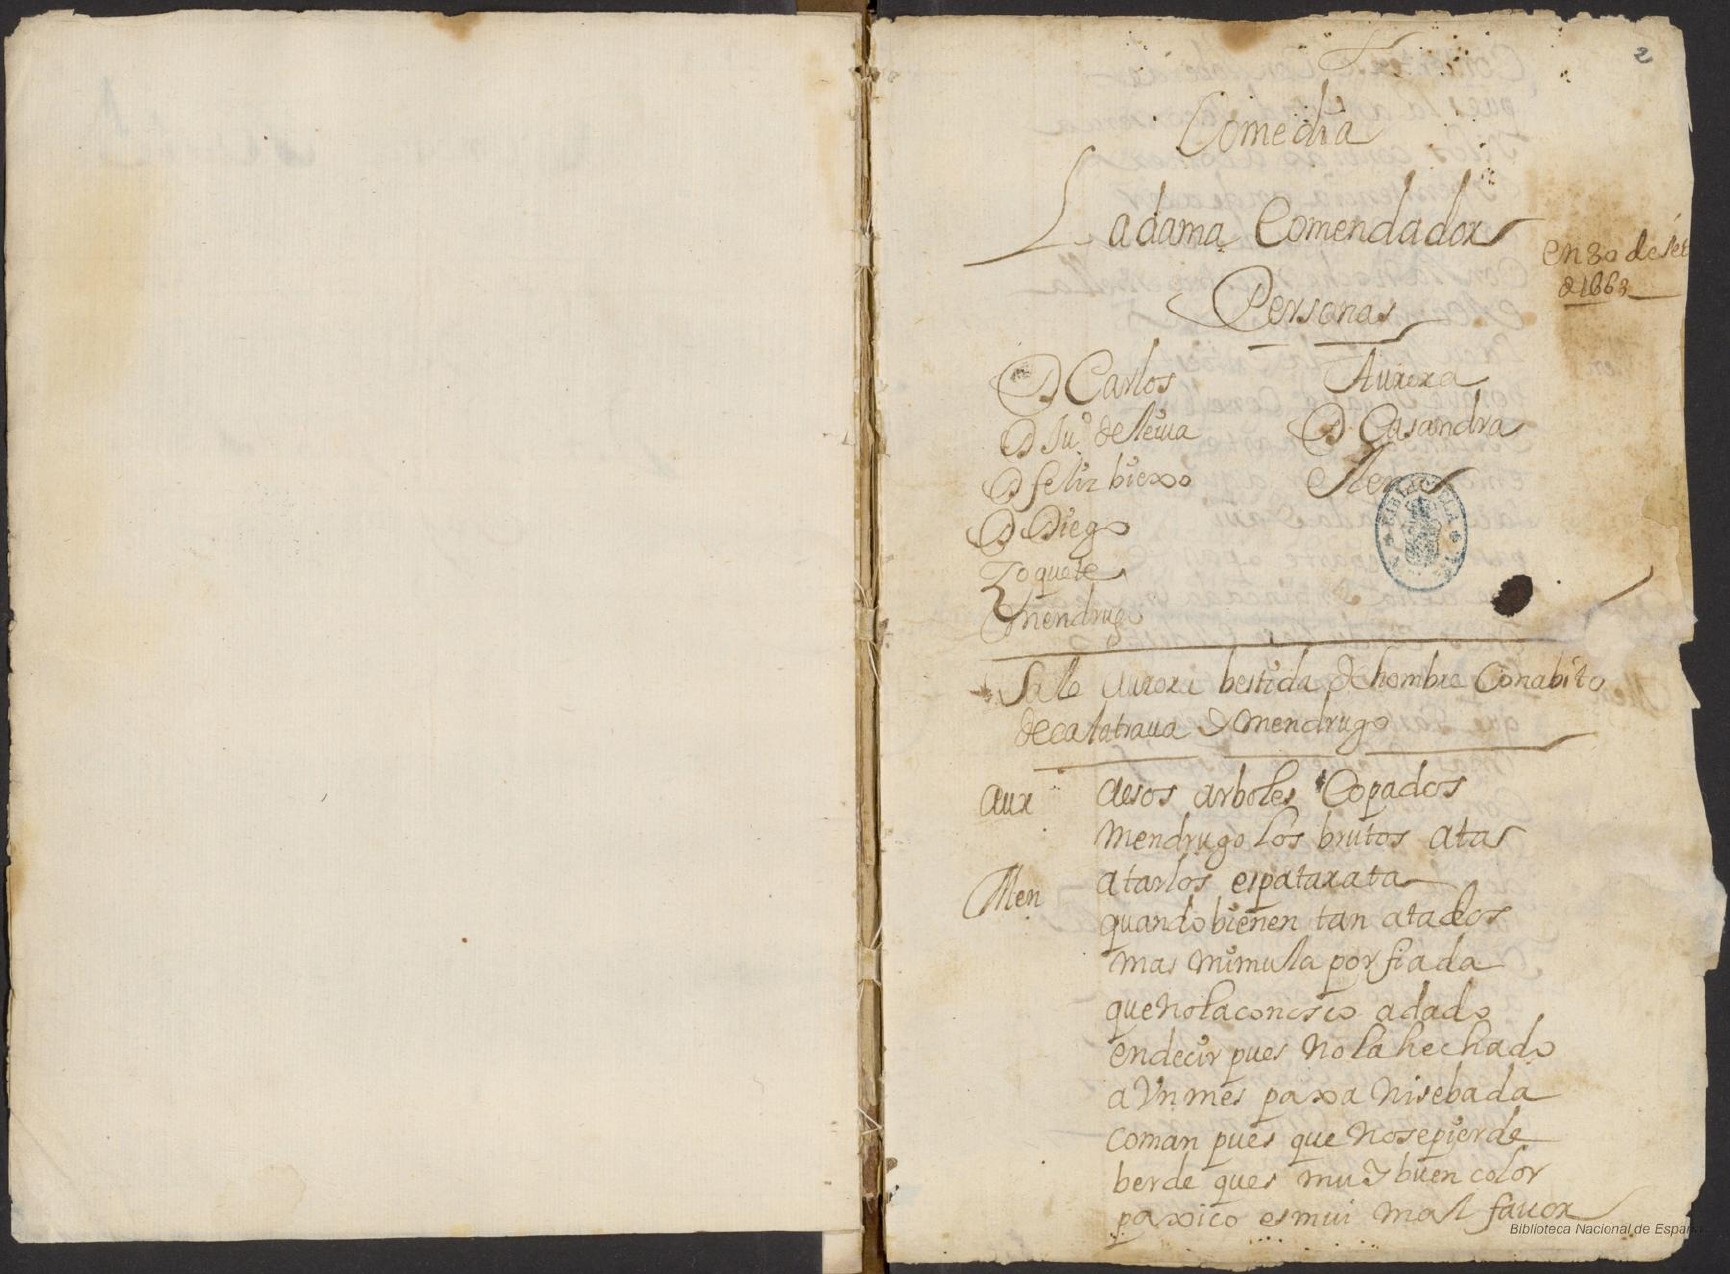 2
Comedia
La dama Comendador
en 30 de set
d 1663
Personas
D Carlos
Aurora
D Ju.º de leiua
D Casandra
D felix biexo
D Diego
Zoquete
mendrugo
Sale aurora bestida de hombre Con abito
de calatraua y mendrugo
Aur
aesos arboles Copados
mendrugo los brutos atas
Men
atarlos es patarata
quando bienen tan atados
mas mi mula porfiada
que no la conosco a dado
en decir pues no la hechado
a Un mes paxa ni sebada
coman pues que no se pierde
berde ques muy buen color
paxico es mui mal fauor
BIBLIOTECA
Biblioteca Nacional de España